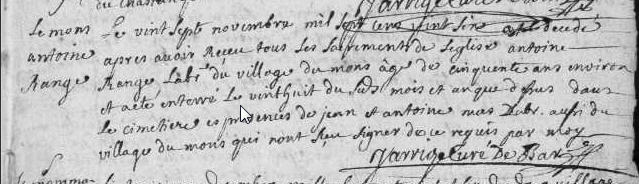 du
Le mons Le vint sept novembre mil sept cens vint six est decedé
antoine apres avoir Receu tous les sacrements de leglise antoine
Range Range Labr du village du mons âgé de cinquente ans environ
et a eté enterré le vinthuit du sus mois et an que dessus dans
le cimetiere es presences de jean et antoine mas Labr. aussi du
village du mons qui nont sçeu signer de ce requis par moy
Jarrige Curé De Bar
village